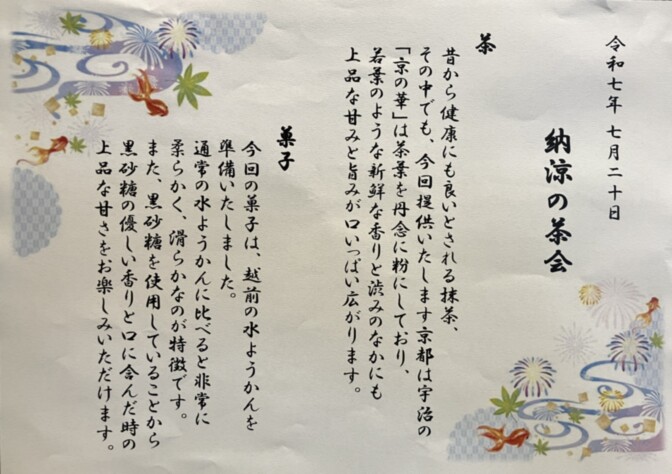 令和七年 七月二十日
納涼の茶会
茶
昔から健康にも良いとされる抹茶、
その中でも、今回提供いたします京都は宇治の
「京の華」は茶葉を丹念に粉にしており、
若葉のような新鮮な香りと渋みのなかにも
上品な甘みと旨みが口いっぱい広がります。
菓子
今回の菓子は、越前の水ようかんを
準備いたしました。
通常の水ようかんに比べると非常に
柔らかく、滑らかなのが特徴です。
また、黒砂糖を使用していることから
黒砂糖の優しい香りと口に含んだ時の
上品な甘さをお楽しみいただけます。